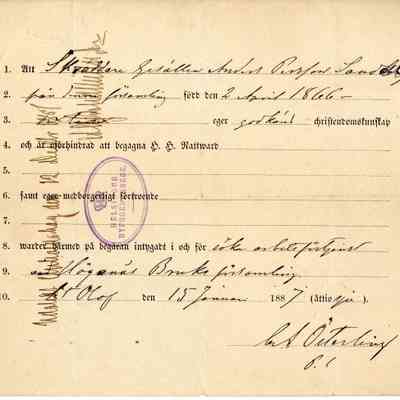 1. Att Skräddare Gesällen Anders Persson
2. från denna församling född den 2 April 1866 —
3. eger godkänd christendomskunskap
4. och är oförhindrad att begagna H. H. Nattward
5.
6. samt eger medborgerligt förtroende
7.
8. warder härmed på begäran intygadt i och för söka arbetsförtjenst
9. Höganäs Bruks församling
10. St Olof den 15 Januari 1887 (åttiosju).
Österling
p. l
HELSINGB.